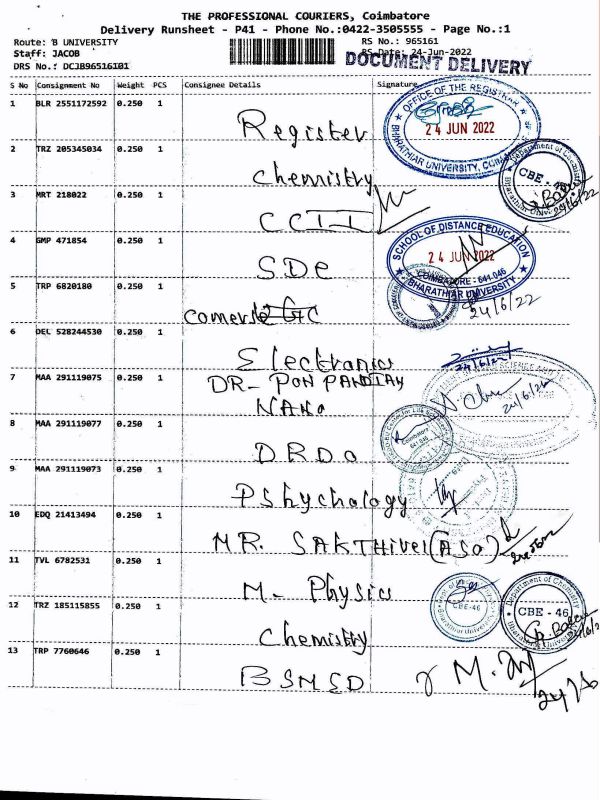 THE PROFESSIONAL COURIERS, Coimbatore
Delivery Runsheet - P41 - Phone No.:0422-3505555 - Page No.:1
Route: B UNIVERSITY RS No.: 965161
Staff: JACOB RS Date: 24-Jun-2022
DRS No.: DCJB96516I01 DOCUMENT DELIVERY
S No Consignment No Weight PCS Consignee Details Signature
1 BLR 2551172592 0.250 1 Register
OFFICE OF THE REGISTRAR
24 JUN 2022
BHARATHIAR UNIVERSITY,
2 TRZ 205345034 0.250 1 chemistry
Department of Chemistry
CBE - 46
24/6/22
3 MRT 218022 0.250 1 CCII
4 GMP 471854 0.250 1 SDe
SCHOOL OF DISTANCE EDUCATION
24 JUN 2022
COIMBATORE - 641 046
BHARATHIAR UNIVERSITY
5 TRP 6820180 0.250 1 comerse
24/6/22
6 DEL 528244530 0.250 1 Electronics
24/6/22
7 MAA 291119075 0.250 1 DR- PON PANDIAN
NANO
24/6/22
8 MAA 291119077 0.250 1 DRDO
9 MAA 291119073 0.250 1 PShychology
10 EDQ 21413494 0.250 1 MR. SAKTHIVEL (ASO)
11 TVL 6782531 0.250 1 M- Physics
CBE-46
12 TRZ 185115855 0.250 1 chemistry
Department of Chemistry
CBE - 46
13 TRP 7760646 0.250 1 BSMED